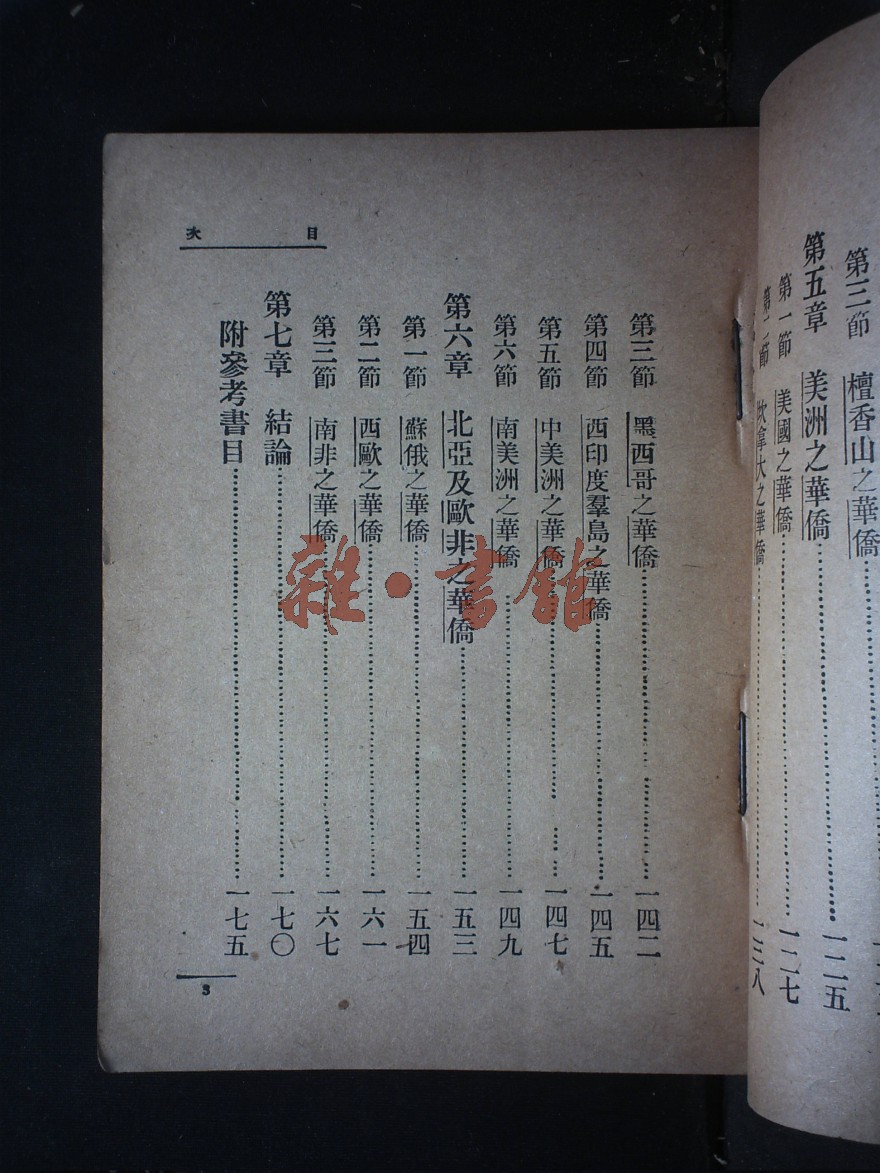 第三節 檀香山之華僑
第五章 美洲之華僑…………一二五
第一節 美國之華僑…………一二七
第二節 坎拿大之華僑…………一三八
目次
第三節 黑西哥之華僑…………一四二
第四節 西印度羣島之華僑…………一四五
第五節 中美洲之華僑…………一四七
第六節 南美洲之華僑…………一四九
第六章 北亞及歐非之華僑…………一五三
第一節 蘇俄之華僑…………一五四
第二節 西歐之華僑…………一六一
第三節 南非之華僑…………一六七
第七章 結論…………一七〇
附參考書目…………一七五
3
雜·書館